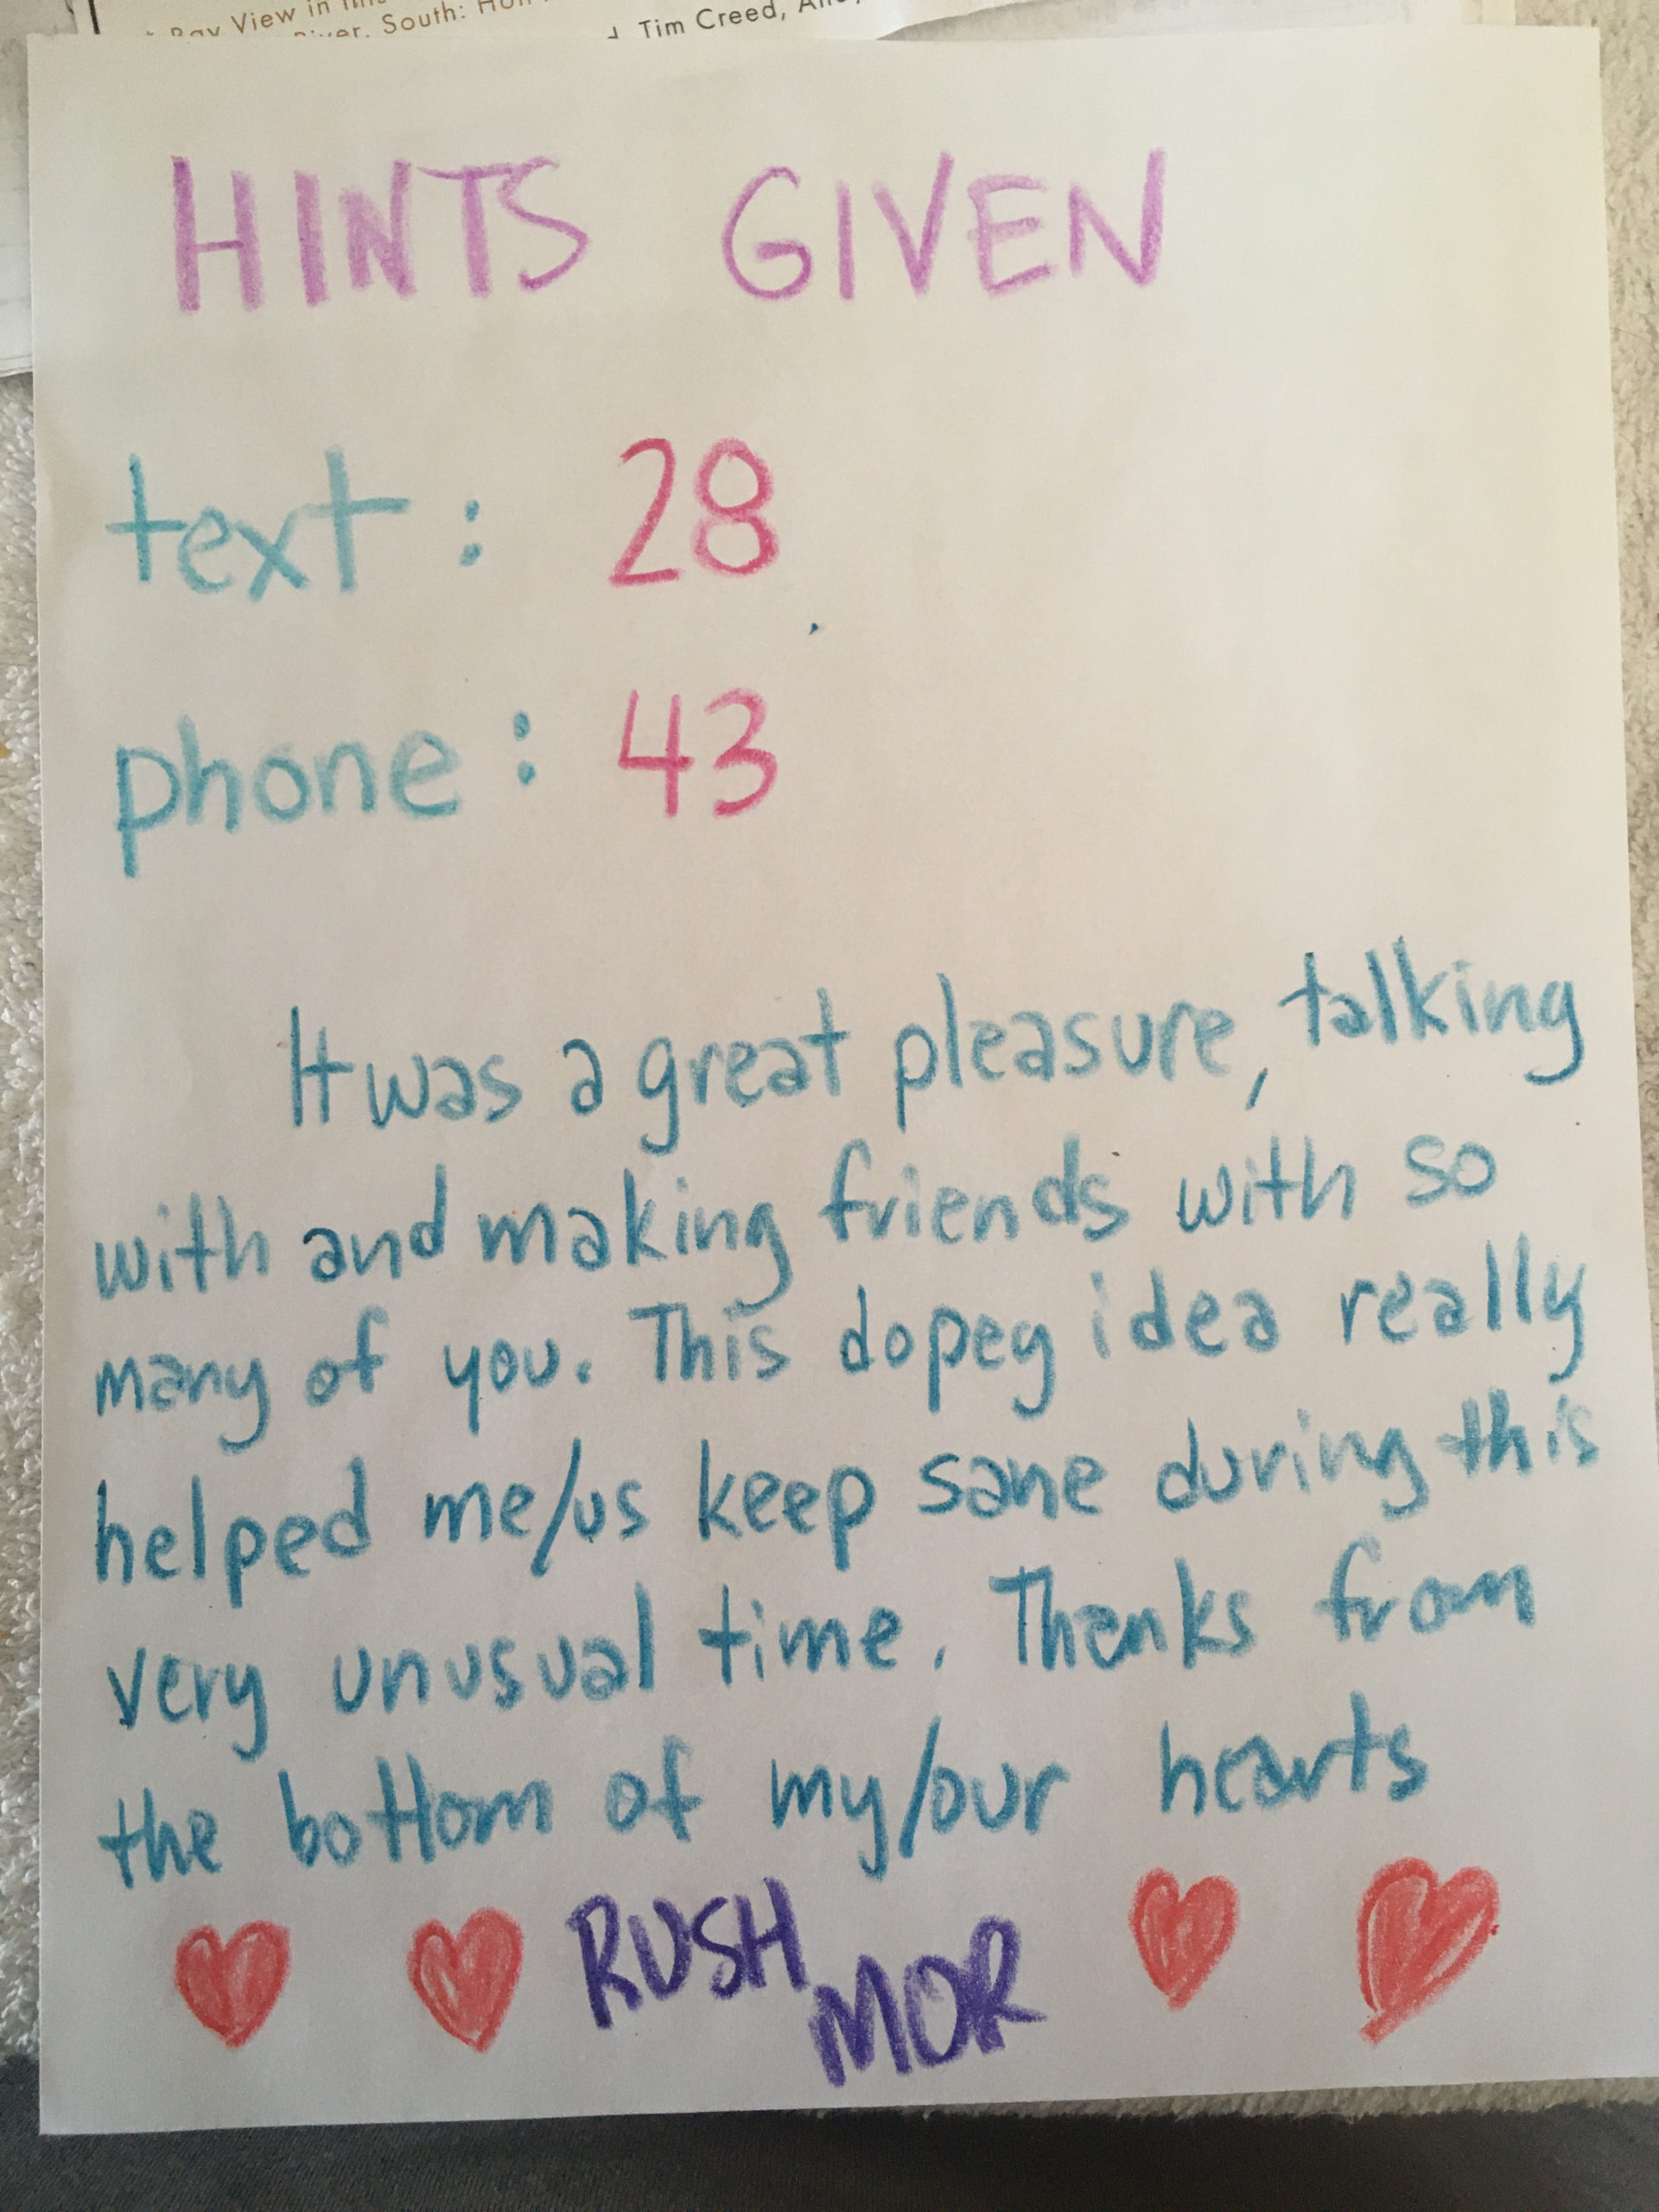 Bay View in
River, South:
Tim Creed,
HINTS GIVEN
text: 28
phone: 43
It was a great pleasure, talking
with and making friends with so
many of you. This dopey idea really
helped me/us keep sane during this
very unusual time. Thanks from
the bottom of my/our hearts
RUSH
MOR